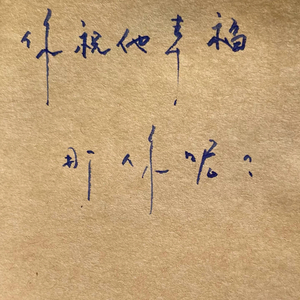 你祝他幸福
那你呢?